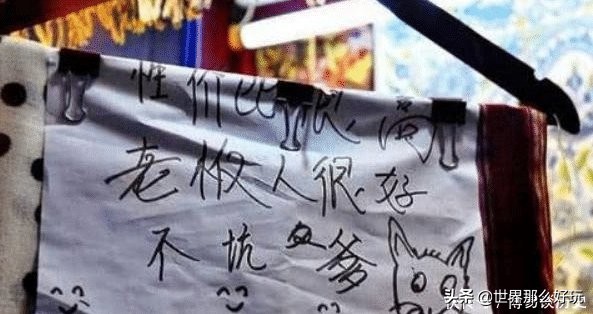 性价比很高
老板人很好
不坑爹
头条 @世界那么好玩